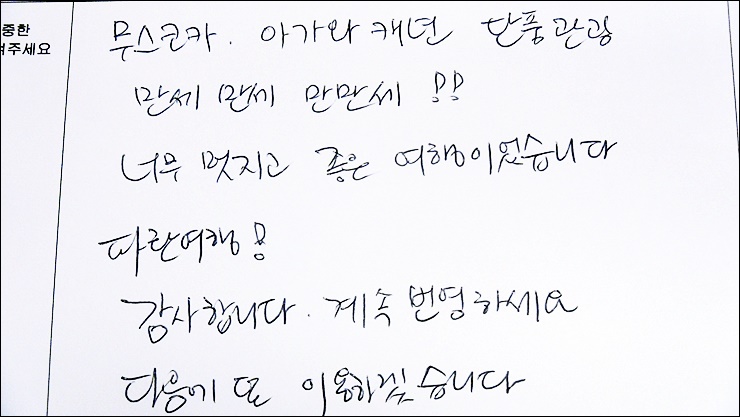 중한
겨주세요
무스코카. 아가와 캐년 단풍관광
만세 만세 만만세 !!
너무 멋지고 좋은 여행이었습니다
파란여행!
감사합니다. 계속 번영하세요
다음에 또 이용하겠습니다